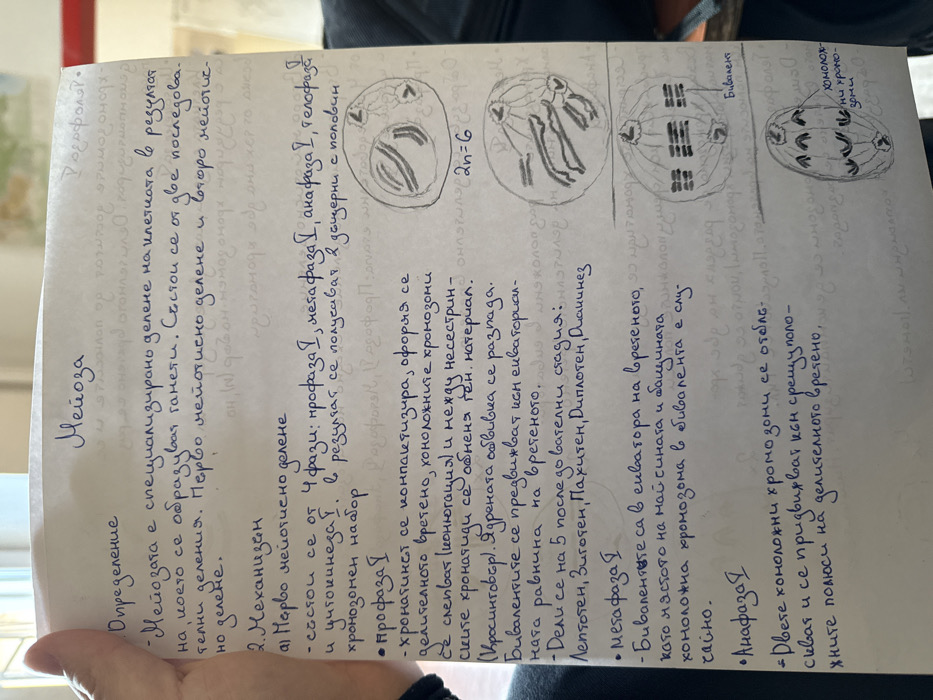 Мейоза
1. Определение
- Мейозата е специализирано делене на клетката в резултат
на, което се образуват гамети. Състои се от две последова-
телни деления. Първо мейотисно делене и второ мейотис-
но делене.
2. Механизъм
а) Първо мейотисно делене
- състои се от 4 фази: профаза I, метафаза I, анафаза I, телофаза I
и цитокинеза I. В резултат се получават 2 дъщерни с половин
хромозомен набор
• Профаза I
- хроматинът се компактизира, оформя се
делителното вретено, хомоложните хромозоми
се слепват (конюгация) и между несестрин-
ските хроматиди се обменя ген. материал.
(Кросинговър). Ядрената обвивка се разпада.
Бивалентите се предвижват към екваториал-
ната равнина на вретеното.
- Дели се на 5 последователни стадия:
Лептотен, Зиготен, Пахитен, Диплотен, Диакинез
2n=6
• Метафаза I
- Бивалентите са в екватора на вретеното,
като мястото на майсината и бащината
хомоложна хромозома в бивалента е слу-
чайно.
Бивалент
• Анафаза I
- Двете хомоложни хромозоми се отбле-
скват и се придвижват към срещуполо-
жните полюси на делителното вретено,
хомолож-
ни хромо-
зоми